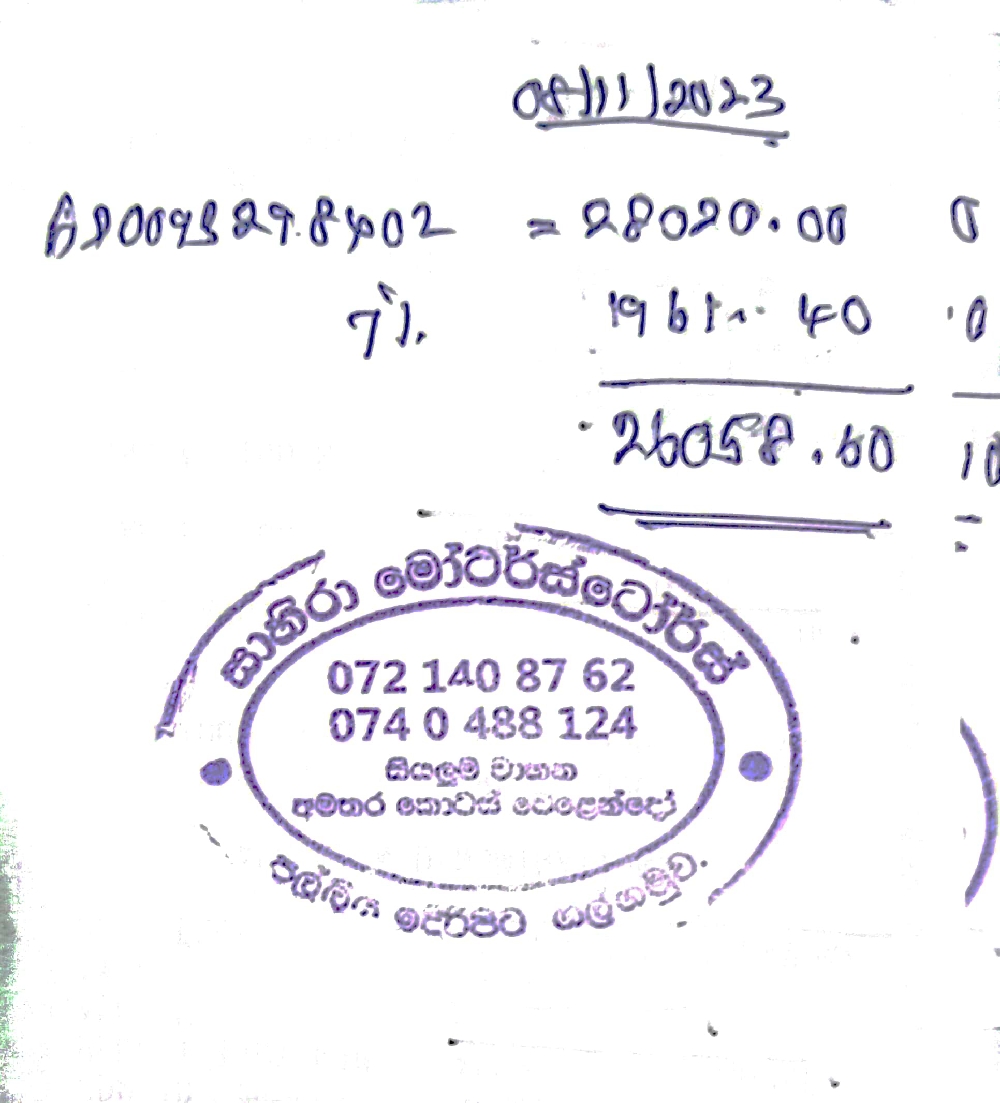 08/11/2023
= 28020.00 0
7% 1961.40
26058.60 10
සාහිරා මෝටර්ස්ටෝර්ස්
072 140 87 62
074 0 488 124
සියලුම වාහන
අමතර කොටස් වෙළෙන්දෝ
පල්ලිය ඉදිරිපිට ගල්ගමුව.